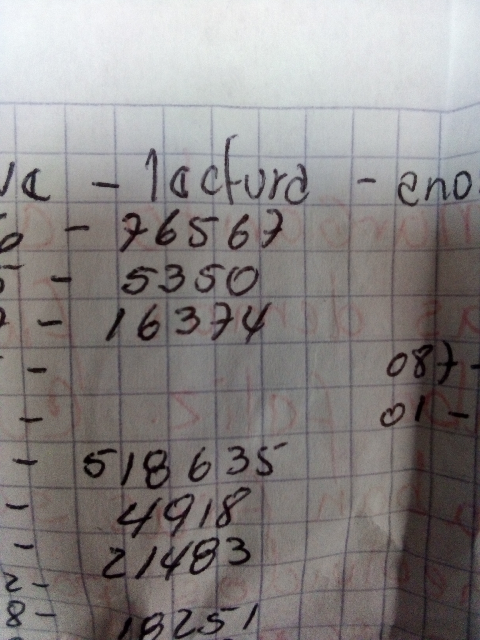 - 1acturd - eno
6 - 76567
5 - 5350
7 - 16374
- 087-
- 01-
- 518635
- 4918
- 21483
2-
8- 18251